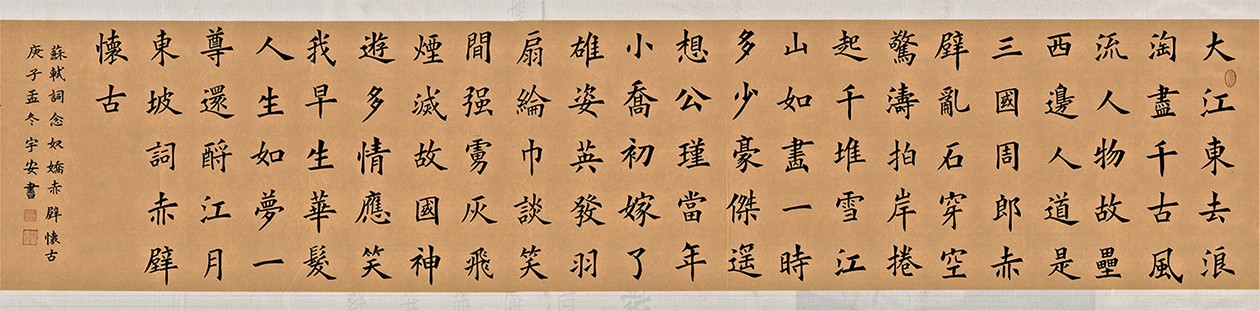 大江東去浪
淘盡千古風
流人物故壘
西邊人道是
三國周郎赤
壁亂石穿空
驚濤拍岸捲
起千堆雪江
山如畫一時
多少豪傑遥
想公瑾當年
小喬初嫁了
雄姿英發羽
扇綸巾談笑
間强虜灰飛
煙滅故國神
遊多情應笑
我早生華髮
人生如夢一
尊還酹江月
東坡詞赤壁
懷古
蘇軾詞念奴嬌赤壁懷古
庚子孟冬宇安書